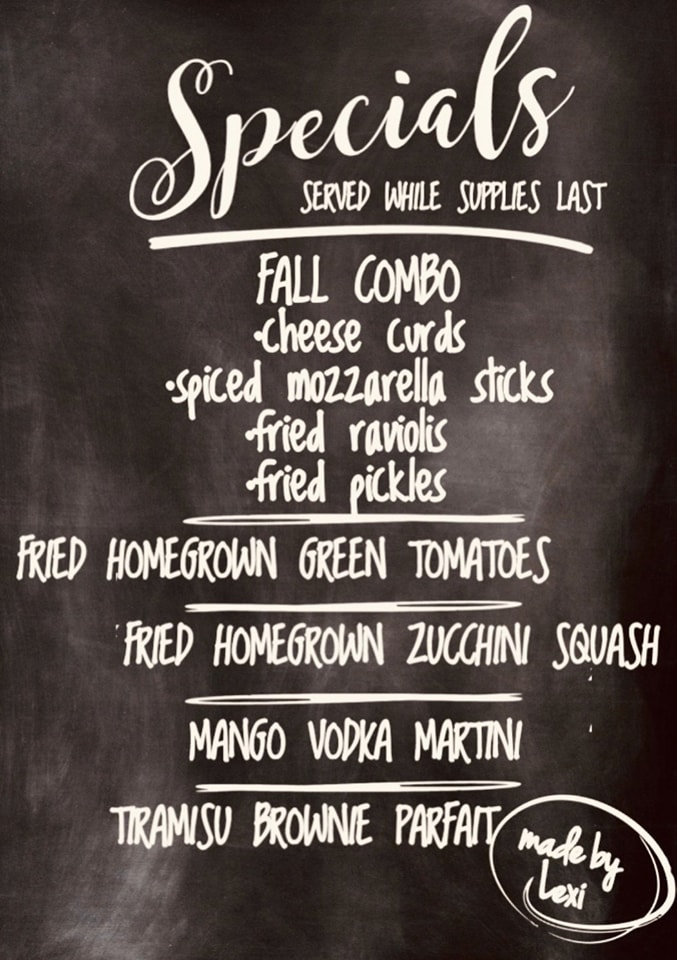 Specials
SERVED WHILE SUPPLIES LAST
FALL COMBO
•cheese curds
•spiced mozzarella sticks
•fried raviolis
•fried pickles
FRIED HOMEGROWN GREEN TOMATOES
FRIED HOMEGROWN ZUCCHINI SQUASH
MANGO VODKA MARTINI
TIRAMISU BROWNIE PARFAIT
made by
Lexi